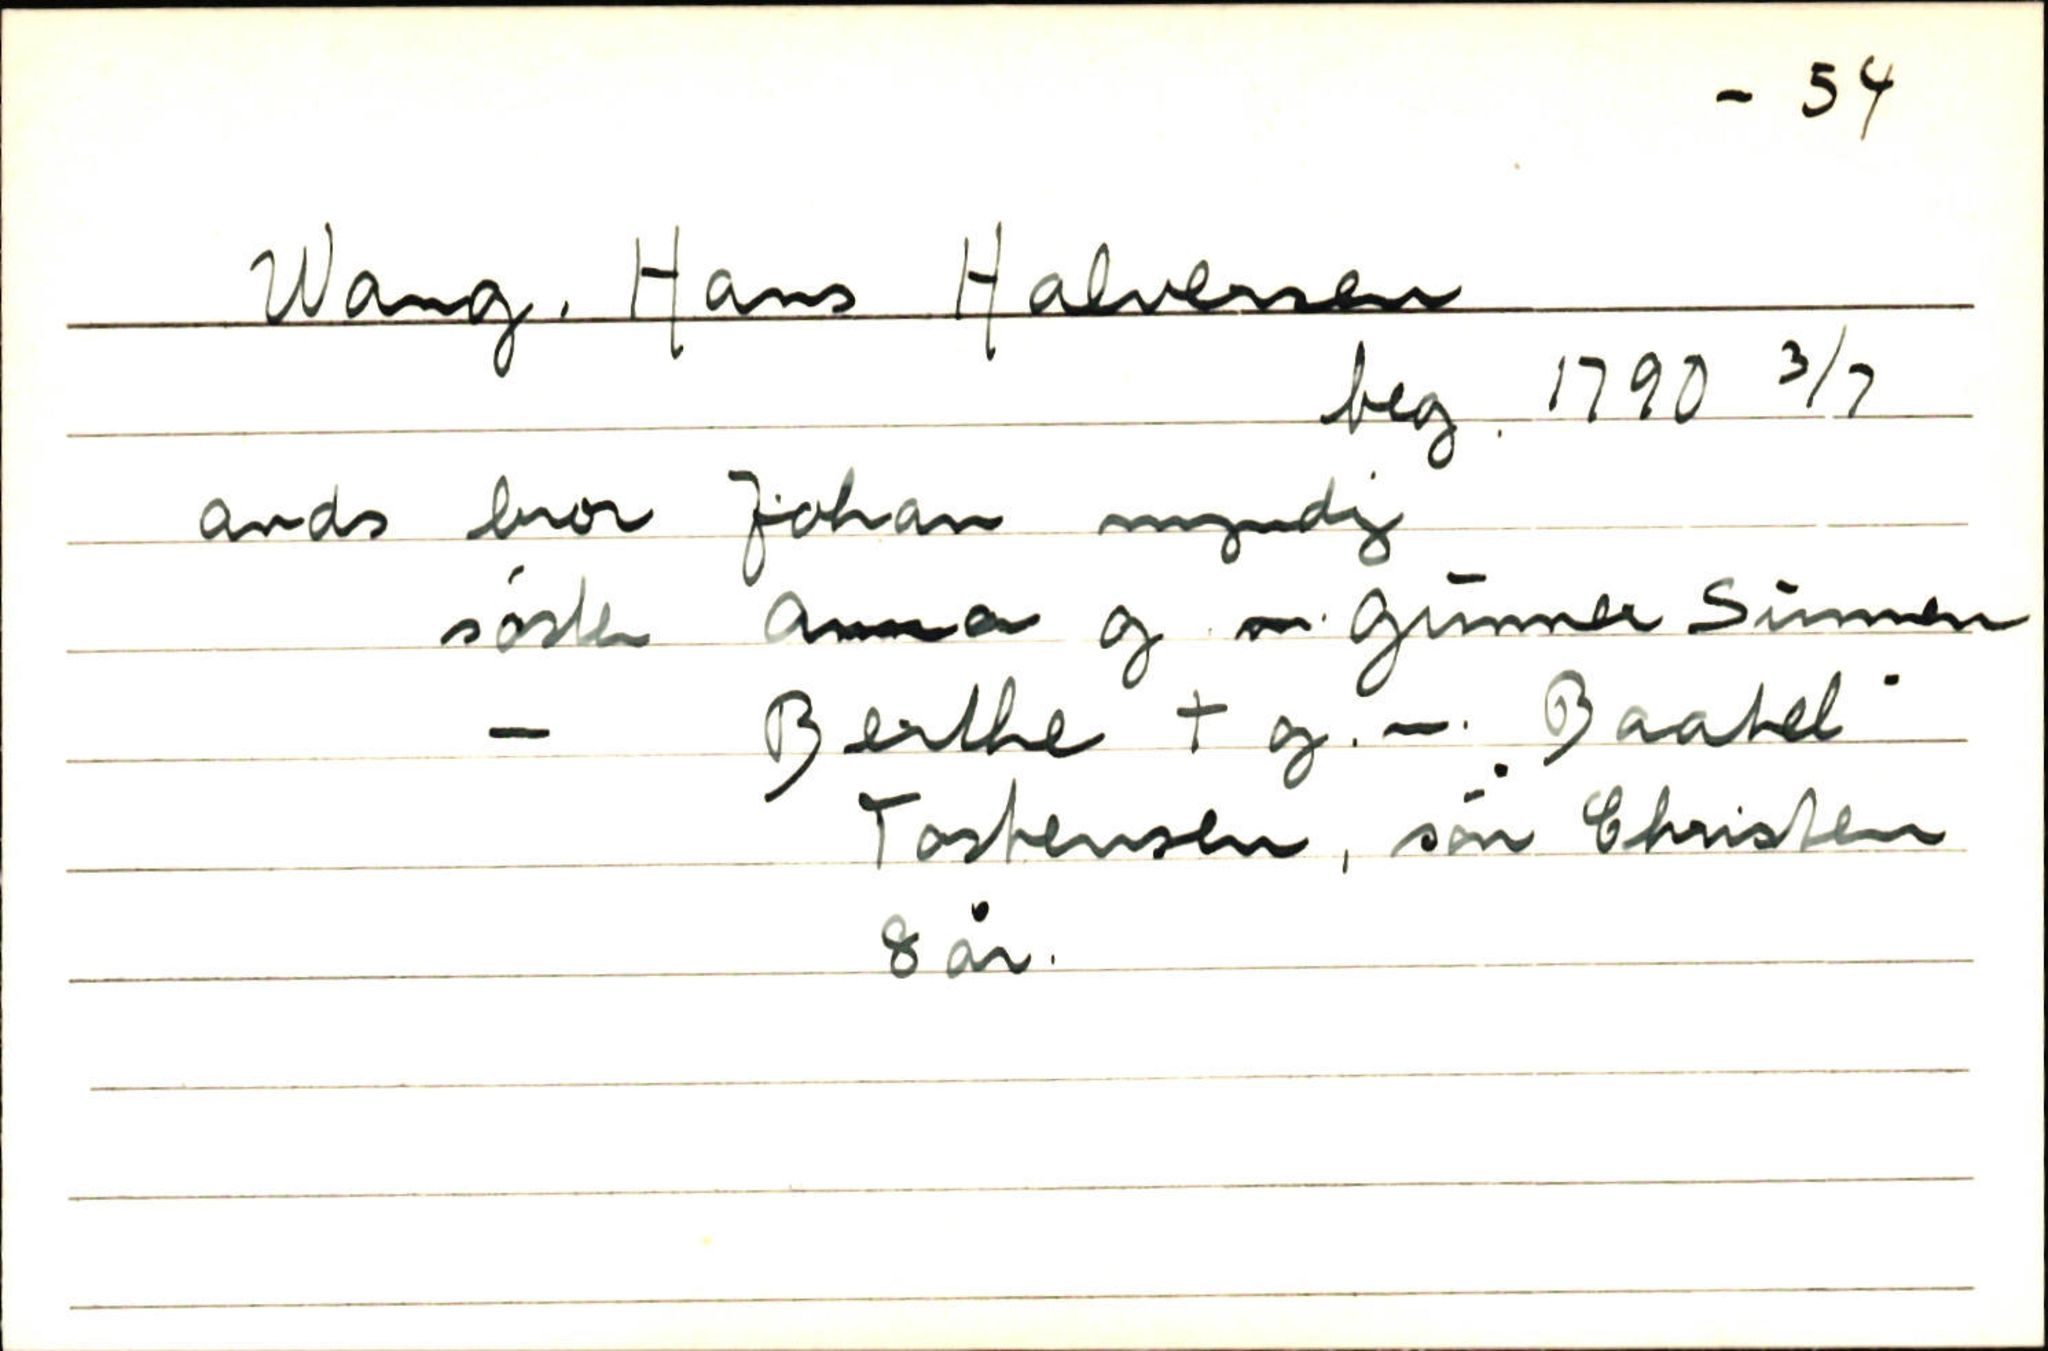 - 54
Wang, Hans Halversen
beg. 1790 3/7
ands bror Johan myndig
søster Anna g m. Gunner Simmen
- Berthe + g. - . Baatel
Tostensen, søn Christen
8 år.